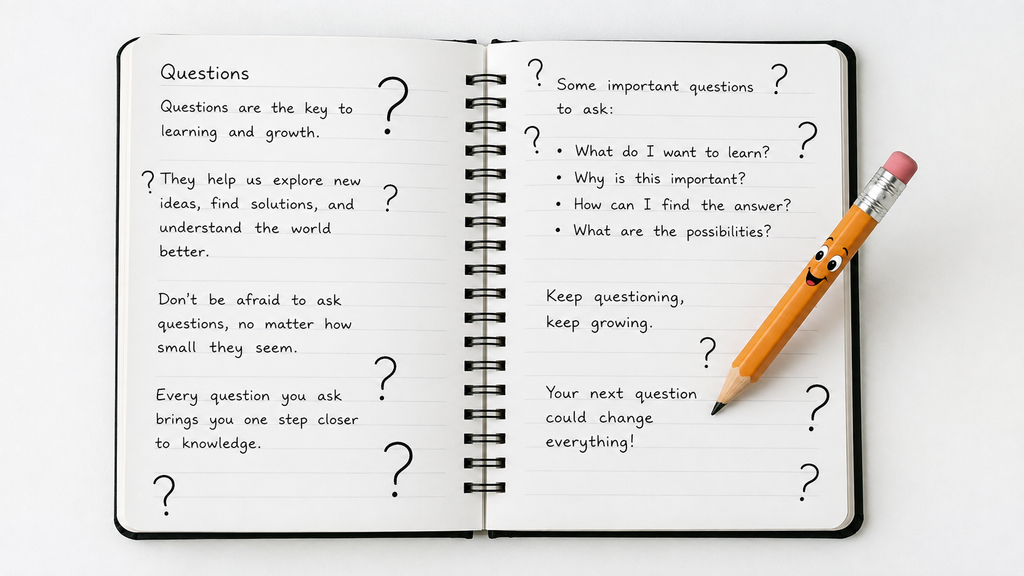 Questions
Questions are the key to
learning and growth.
They help us explore new
ideas, find solutions, and
understand the world
better.
Don't be afraid to ask
questions, no matter how
small they seem.
Every question you ask
brings you one step closer
to knowledge.
Some important questions
to ask:
• What do I want to learn?
• Why is this important?
• How can I find the answer?
• What are the possibilities?
Keep questioning,
keep growing.
Your next question
could change
everything!